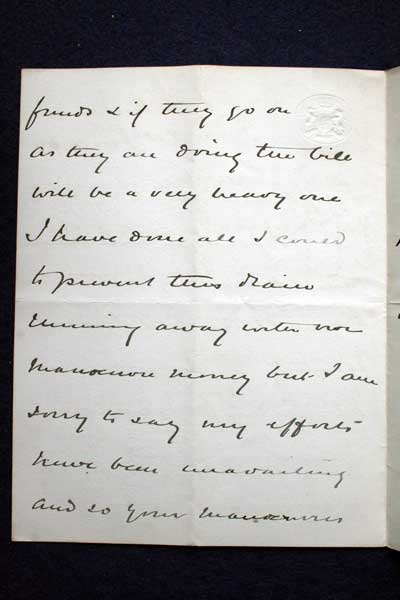 funds & if they go on
as they are doing the bill
will be a very heavy one
I have done all I could
to prevent this drain
running away with our
manœuvre money but I am
sorry to say my efforts
have been unavailing
and so your manœuvres